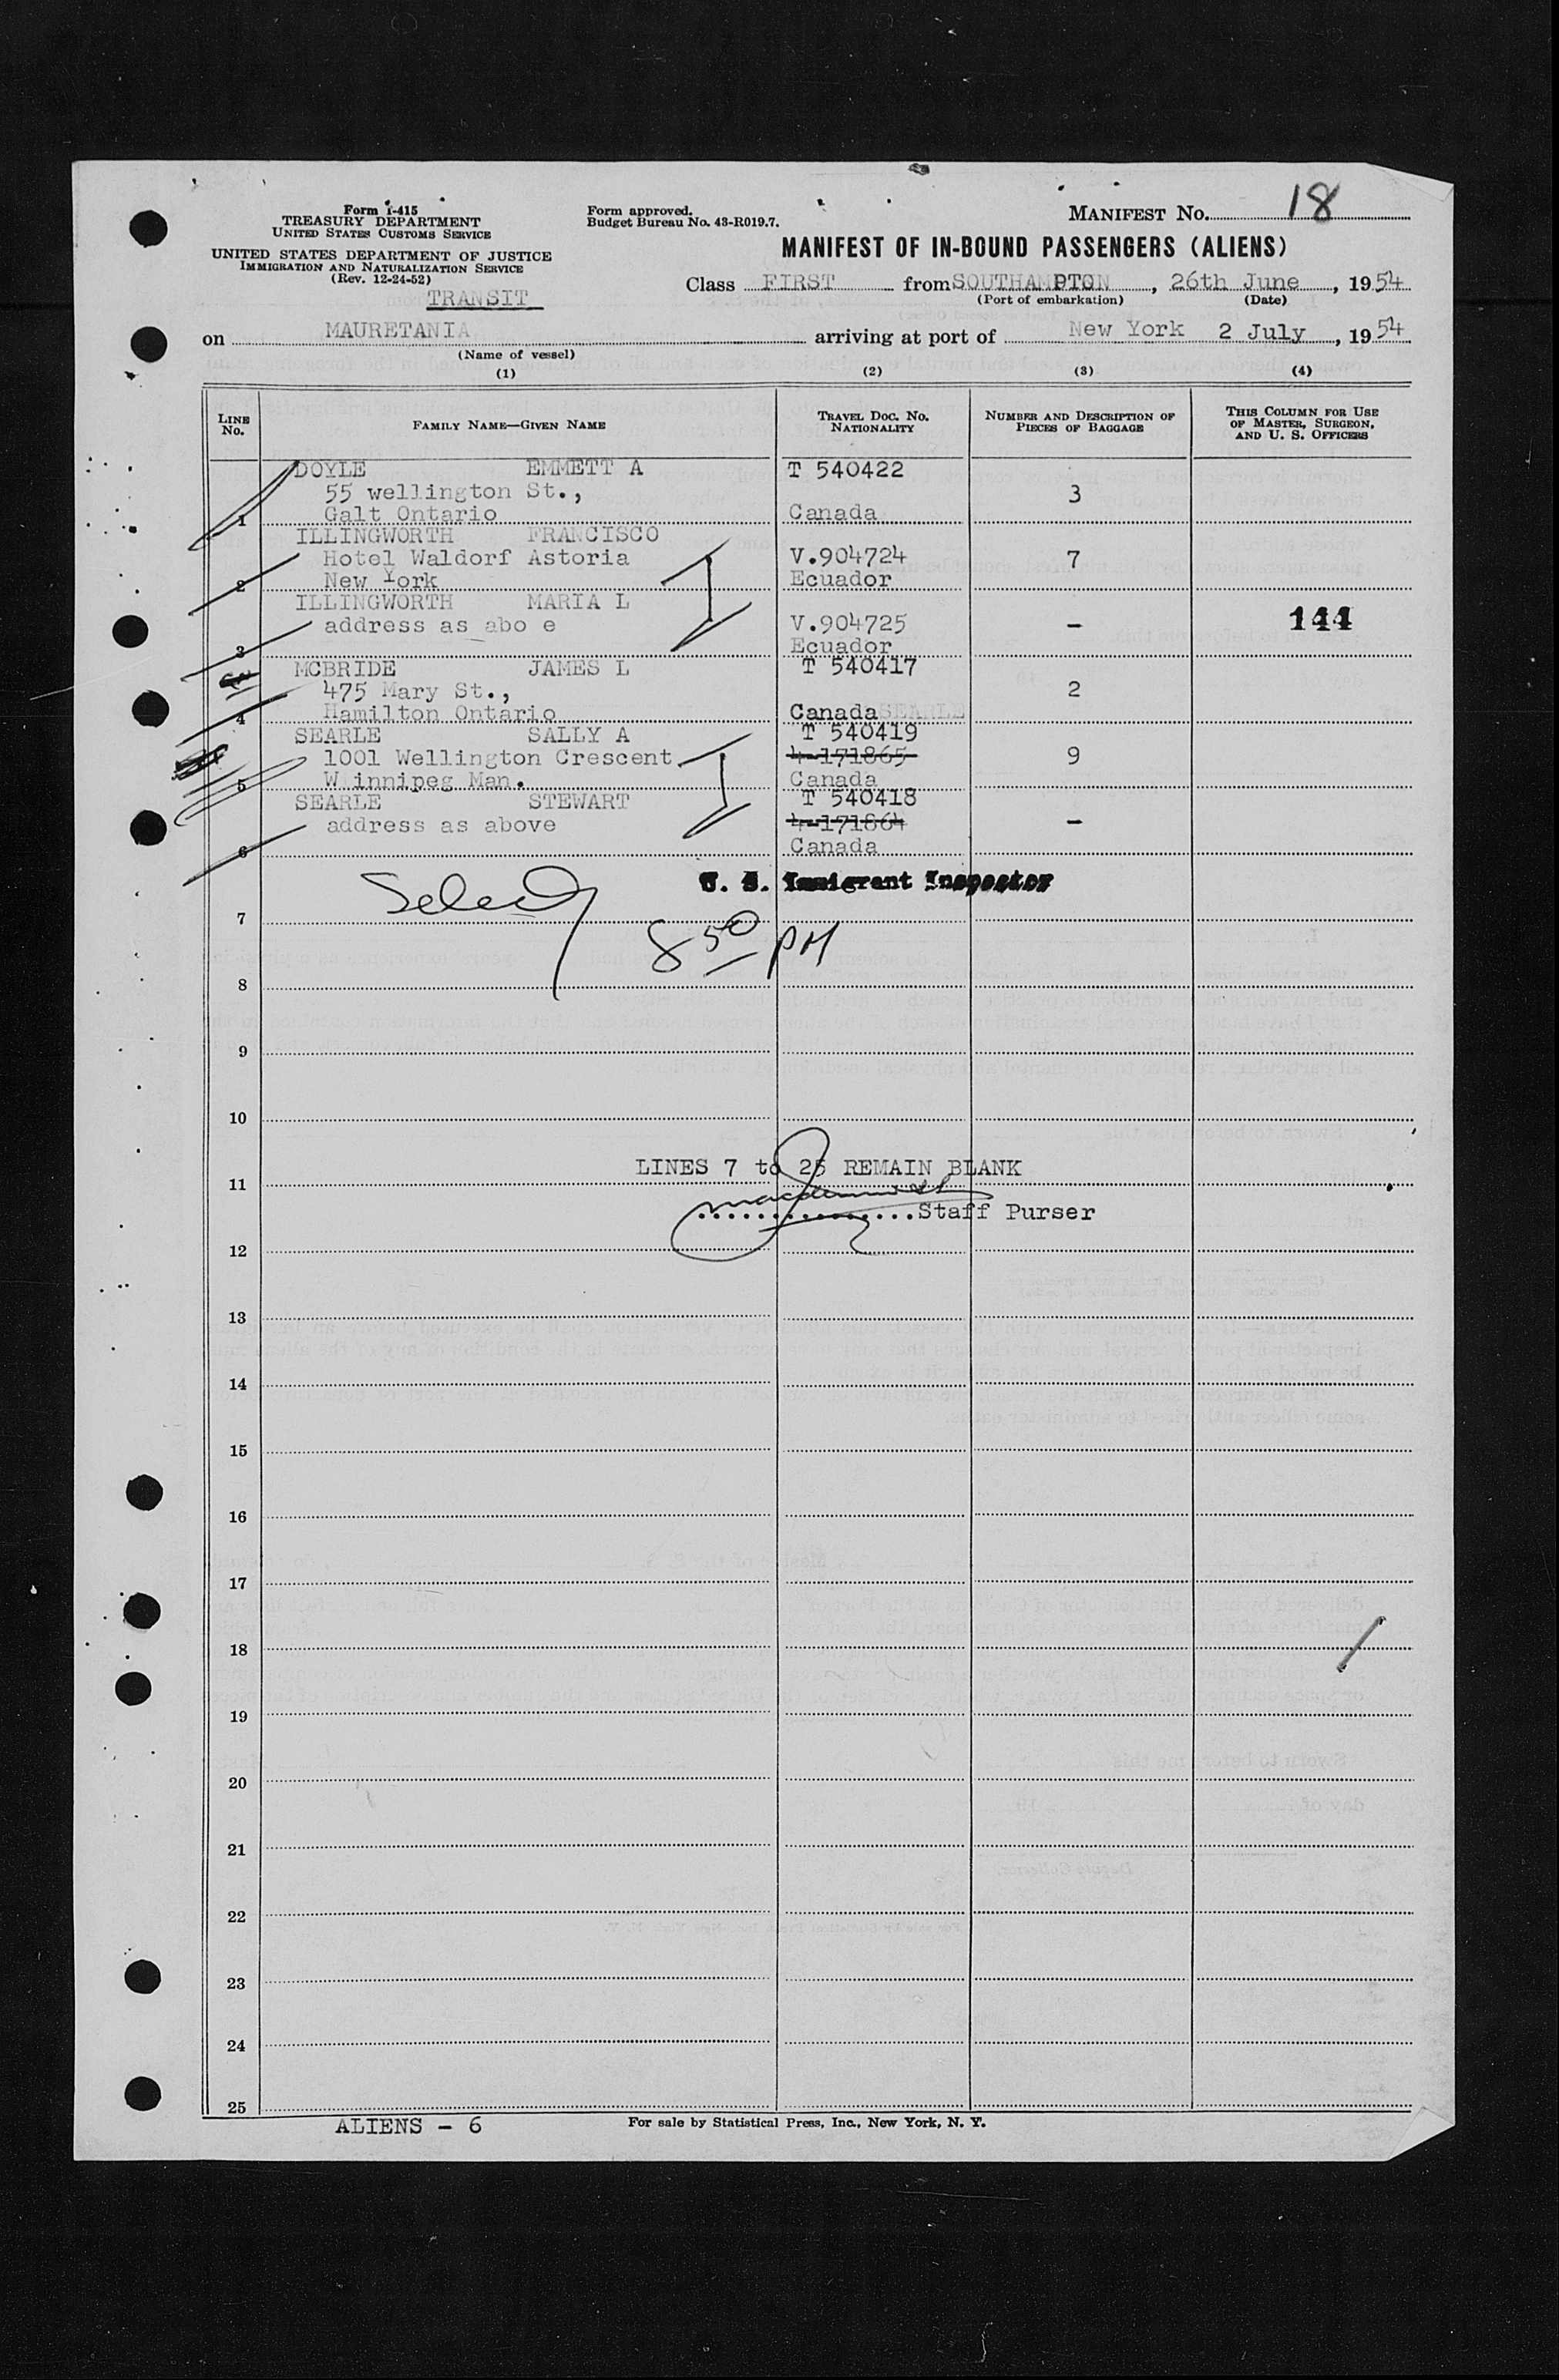 Form I-415
TREASURY DEPARTMENT
UNITED STATES CUSTOMS SERVICE
UNITED STATES DEPARTMENT OF JUSTICE
IMMIGRATION AND NATURALIZATION SERVICE
(Rev. 12-24-52)
TRANSIT
Form approved.
Budget Bureau No. 43-R019.7.
MANIFEST No. 18
MANIFEST OF IN-BOUND PASSENGERS (ALIENS)
Class FIRST from SOUTHAMPTON, 26th June, 1954
(Port of embarkation) (Date)
on MAURETANIA arriving at port of New York 2 July, 1954
(Name of vessel)
(1) (2) (3) (4)
LINE No. FAMILY NAME—GIVEN NAME TRAVEL DOC. No. NATIONALITY NUMBER AND DESCRIPTION OF PIECES OF BAGGAGE THIS COLUMN FOR USE OF MASTER, SURGEON, AND U. S. OFFICERS
DOYLE EMMETT A T 540422
55 wellington St., 3
1 Galt Ontario Canada
ILLINGWORTH FRANCISCO
Hotel Waldorf Astoria V.904724 7
2 New York Ecuador
ILLINGWORTH MARIA L
address as abo e V.904725 - 144
3 Ecuador
MCBRIDE JAMES L T 540417
475 Mary St., 2
4 Hamilton Ontario Canada SEARLE
SEARLE SALLY A T 540419
1001 Wellington Crescent 4-171865 9
5 W innipeg Man. Canada
SEARLE STEWART T 540418
address as above 4-171864 -
6 Canada
U. S. Immigrant Inspector
7
8 50 PM
8
9
10
LINES 7 to 25 REMAIN BLANK
11
...............Staff Purser
12
13
14
15
16
17
18
19
20
21
22
23
24
25
ALIENS - 6
For sale by Statistical Press, Inc., New York, N. Y.